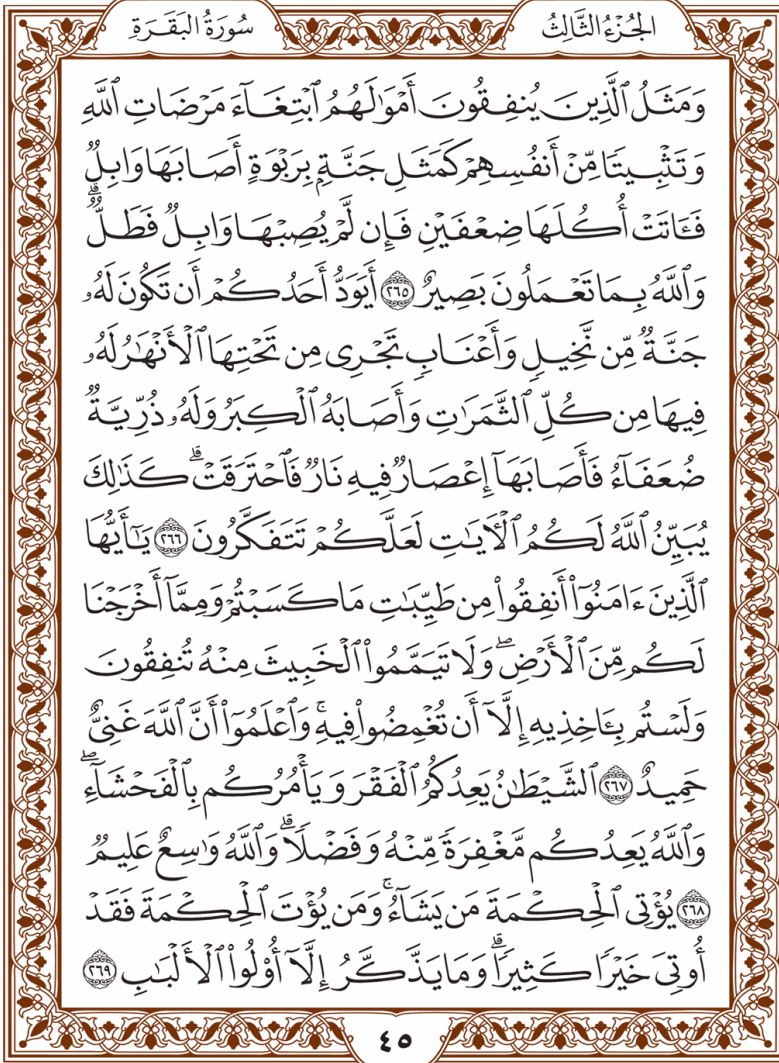 الجُزْءُ الثَّالِثُ
سُورَةُ البَقَرَةِ
وَمَثَلُ ٱلَّذِينَ يُنفِقُونَ أَمْوَٰلَهُمُ ٱبْتِغَآءَ مَرْضَاتِ ٱللَّهِ
وَتَثْبِيتًا مِّنْ أَنفُسِهِمْ كَمَثَلِ جَنَّةٍۭ بِرَبْوَةٍ أَصَابَهَا وَابِلٌ
فَـَٔاتَتْ أُكُلَهَا ضِعْفَيْنِ فَإِن لَّمْ يُصِبْهَا وَابِلٌ فَطَلٌّۗ
وَٱللَّهُ بِمَا تَعْمَلُونَ بَصِيرٌ ٢٦٥ أَيَوَدُّ أَحَدُكُمْ أَن تَكُونَ لَهُۥ
جَنَّةٌ مِّن نَّخِيلٍ وَأَعْنَابٍ تَجْرِى مِن تَحْتِهَا ٱلْأَنْهَٰرُ لَهُۥ
فِيهَا مِن كُلِّ ٱلثَّمَرَٰتِ وَأَصَابَهُ ٱلْكِبَرُ وَلَهُۥ ذُرِّيَّةٌ
ضُعَفَآءُ فَأَصَابَهَآ إِعْصَارٌ فِيهِ نَارٌ فَٱحْتَرَقَتْۗ كَذَٰلِكَ
يُبَيِّنُ ٱللَّهُ لَكُمُ ٱلْـَٔايَٰتِ لَعَلَّكُمْ تَتَفَكَّرُونَ ٢٦٦ يَٰٓأَيُّهَا
ٱلَّذِينَ ءَامَنُوٓا۟ أَنفِقُوا۟ مِن طَيِّبَٰتِ مَا كَسَبْتُمْ وَمِمَّآ أَخْرَجْنَا
لَكُم مِّنَ ٱلْأَرْضِۖ وَلَا تَيَمَّمُوا۟ ٱلْخَبِيثَ مِنْهُ تُنفِقُونَ
وَلَسْتُم بِـَٔاخِذِيهِ إِلَّآ أَن تُغْمِضُوا۟ فِيهِۚ وَٱعْلَمُوٓا۟ أَنَّ ٱللَّهَ غَنِىٌّ
حَمِيدٌ ٢٦٧ ٱلشَّيْطَٰنُ يَعِدُكُمُ ٱلْفَقْرَ وَيَأْمُرُكُم بِٱلْفَحْشَآءِۖ
وَٱللَّهُ يَعِدُكُم مَّغْفِرَةً مِّنْهُ وَفَضْلًاۗ وَٱللَّهُ وَٰسِعٌ عَلِيمٌ
٢٦٨ يُؤْتِى ٱلْحِكْمَةَ مَن يَشَآءُۚ وَمَن يُؤْتَ ٱلْحِكْمَةَ فَقَدْ
أُوتِىَ خَيْرًا كَثِيرًاۗ وَمَا يَذَّكَّرُ إِلَّآ أُو۟لُوا۟ ٱلْأَلْبَٰبِ ٢٦٩
٤٥